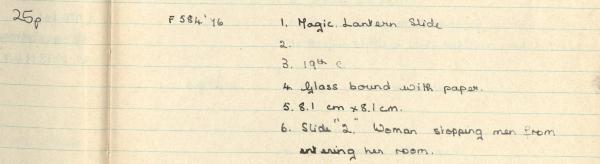 25p F584'76 1. Magic Lantern Slide
2.
3. 19th C
4. Glass bound with paper.
5. 8.1 cm x 8.1 cm.
6. Slide "2". Woman stopping men from
entering her room.